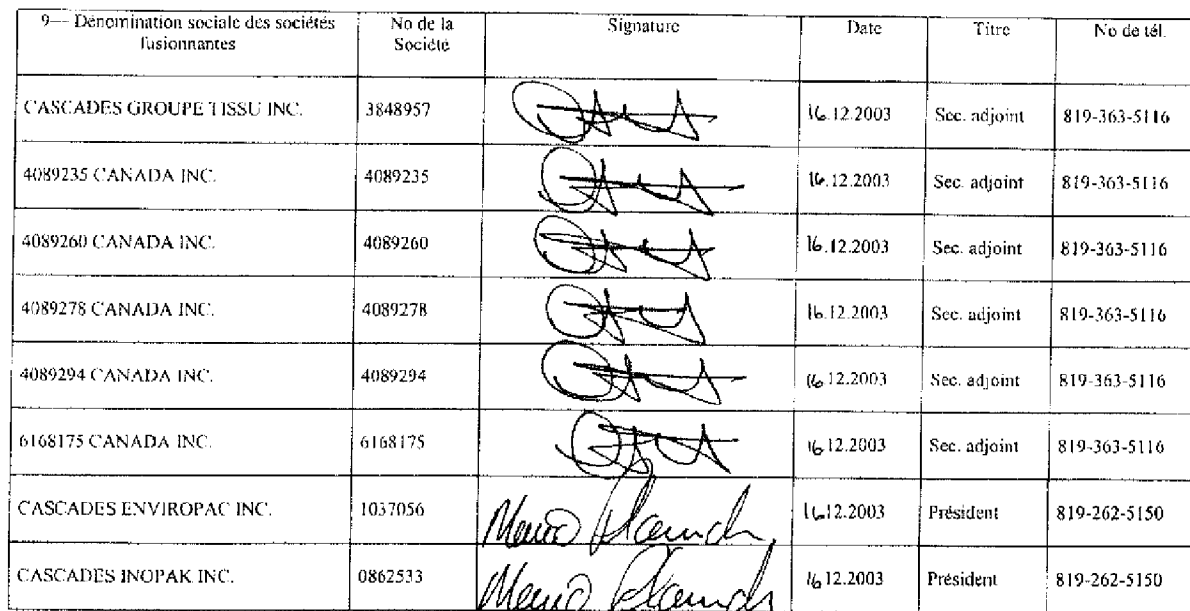 9— Dénomination sociale des sociétés fusionnantes No de la Société Signature Date Titre No de tél.
CASCADES GROUPE TISSU INC. 3848957 16.12.2003 Sec. adjoint 819-363-5116
4089235 CANADA INC. 4089235 16.12.2003 Sec. adjoint 819-363-5116
4089260 CANADA INC. 4089260 16.12.2003 Sec. adjoint 819-363-5116
4089278 CANADA INC. 4089278 16.12.2003 Sec. adjoint 819-363-5116
4089294 CANADA INC. 4089294 16 12.2003 Sec. adjoint 819-363-5116
6168175 CANADA INC. 6168175 16 12.2003 Sec. adjoint 819-363-5116
CASCADES ENVIROPAC INC. 1037056 16 12.2003 Président 819-262-5150
CASCADES INOPAK INC. 0862533 16 12.2003 Président 819-262-5150